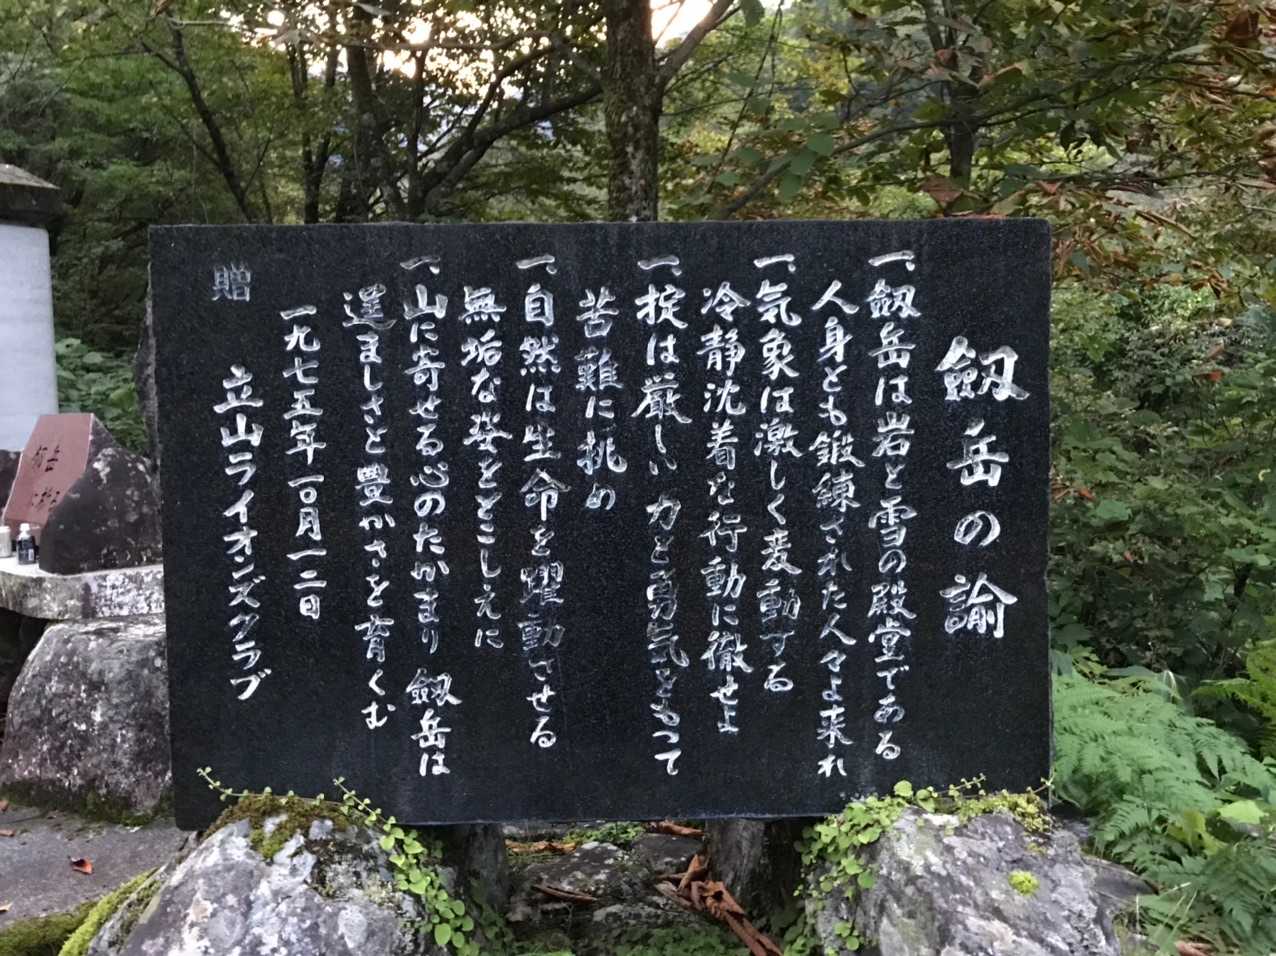 劔岳の諭
一、劔岳は岩と雪の殿堂である
人身とも鍛練された人々よ来れ
一、気象は激しく変動する
冷静沈着な行動に徹せよ
一、掟は厳しい 力と勇気ともつて
苦難に挑め
一、自然は生命を躍動させる
無垢な姿をとこしえに
一、山に寄せる心のたかまり 劔岳は
逞ましさと豊かさを育くむ
一九七五年一〇月一二日
贈 立山ライオンズクラブ